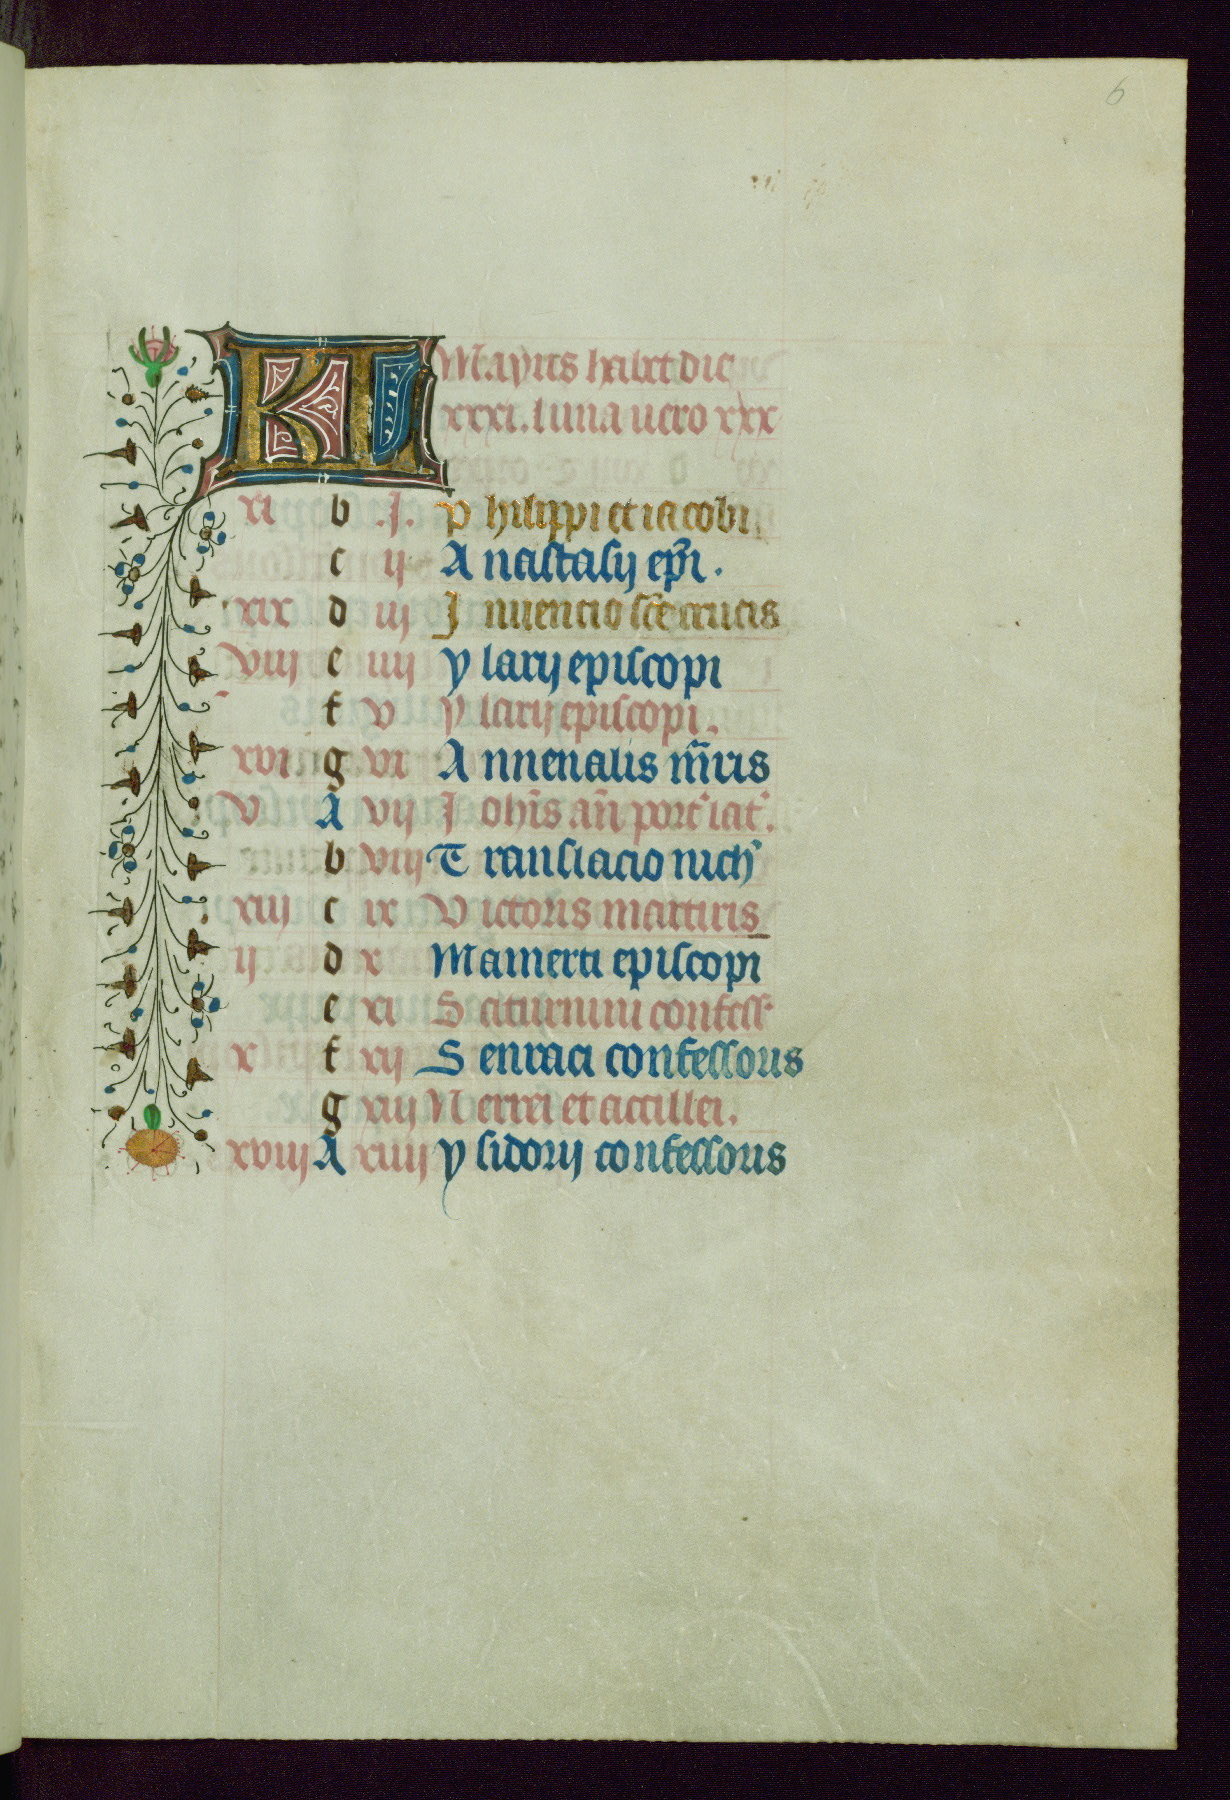 6
KL Mayus habet dies
xxxi. luna uero xxx
xi b .J. Philippi et iacobi
c ij Anastasij ep̃i.
xix d iij Inuencio sc̃e crucis
viij e iiij ylarij episcopi
f v ylarij episcopi.
xvi g vi Annenalis m̃ris
v A vij Joh̃is añ port' lat'.
b viij Translacio nich'
xiij c ix Victoris martiris
ij d x Mamerti episcopi
e xi Saturnini confess'
x f xij Seruaci confessoris
g xiij Nerei et accillei.
xviij A xiiij ysidorij confessoris